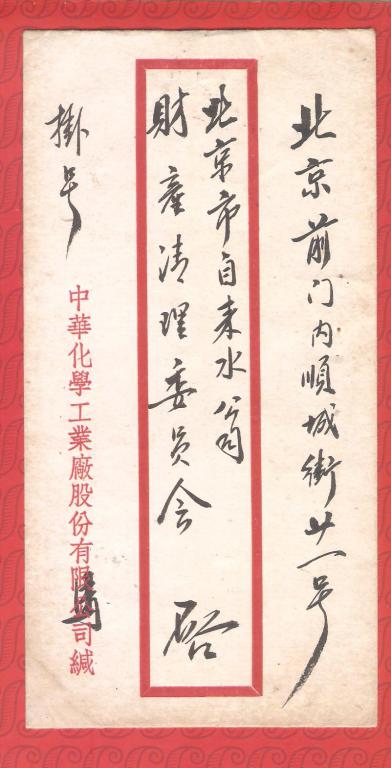 北京前门内順城街廿一号
北京市自来水公司
財產清理委員会 啓
掛号
中華化學工業廠股份有限公司緘